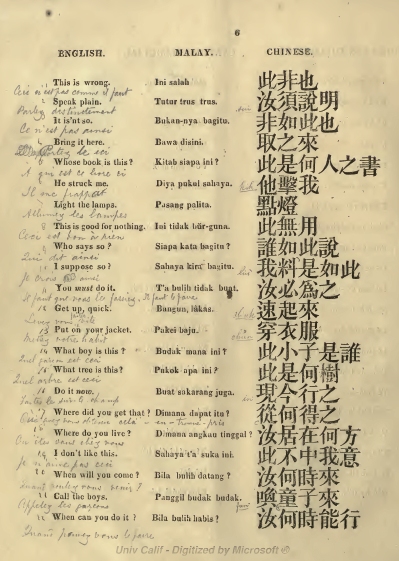 6
ENGLISH. MALAY. CHINESE.
This is wrong. Ini salah 此非也
Ceci n'est pas comme il faut
Speak plain. Tutur trus trus. 汝須說明
Parlez distinctement
It is'nt so. Bukan-nya bagitu. 非如此也
Ce n'est pas ainsi
Bring it here. Bawa disini. 取之來
Whose book is this? Kitab siapa ini? 此是何人之書
A qui est ce livre ci
He struck me. Diya pukul sahaya. 他擊我
Il me frappait
Light the lamps. Pasang palita. 點燈
Allumez les lampes
This is good for nothing. Ini tidak bŭr-guna. 此無用
Ceci est bon à rien
Who says so? Siapa kata bagitu? 誰如此說
Qui dit ainsi
I suppose so? Sahaya kira bagitu. 我料是如此
Je crois ainsi
You must do it. T'a bulih tidak buat. 汝必為之
Il faut que vous le fassiez. Il faut le faire
Get up, quick. Bangun, lakas. 速起來
Put on your jacket. Pakei baju. 穿衣服
Mettez votre habit
What boy is this? Budak mana ini? 此小子是誰
Quel garçon est ceci
What tree is this? Pokok apa ini? 此是何樹
Quel arbre est ceci
Do it now. Buat sakarang juga. 現今行之
Faites le sur le champ
Where did you get that? Dimana dapat ito? 從何得之
Where do you live? Dimana angkau tinggal? 汝居在何方
I don't like this. Sahaya t'a suka ini. 此不中我意
Je n'aime pas ceci
When will you come? Bila bulih datang? 汝何時來
Quand voulez vous venir?
Call the boys. Panggil budak budak. 喚童子來
Appelez les garçons
When can you do it? Bila bulih habis? 汝何時能行
Quand pouvez vous le faire
Univ Calif - Digitized by Microsoft ®